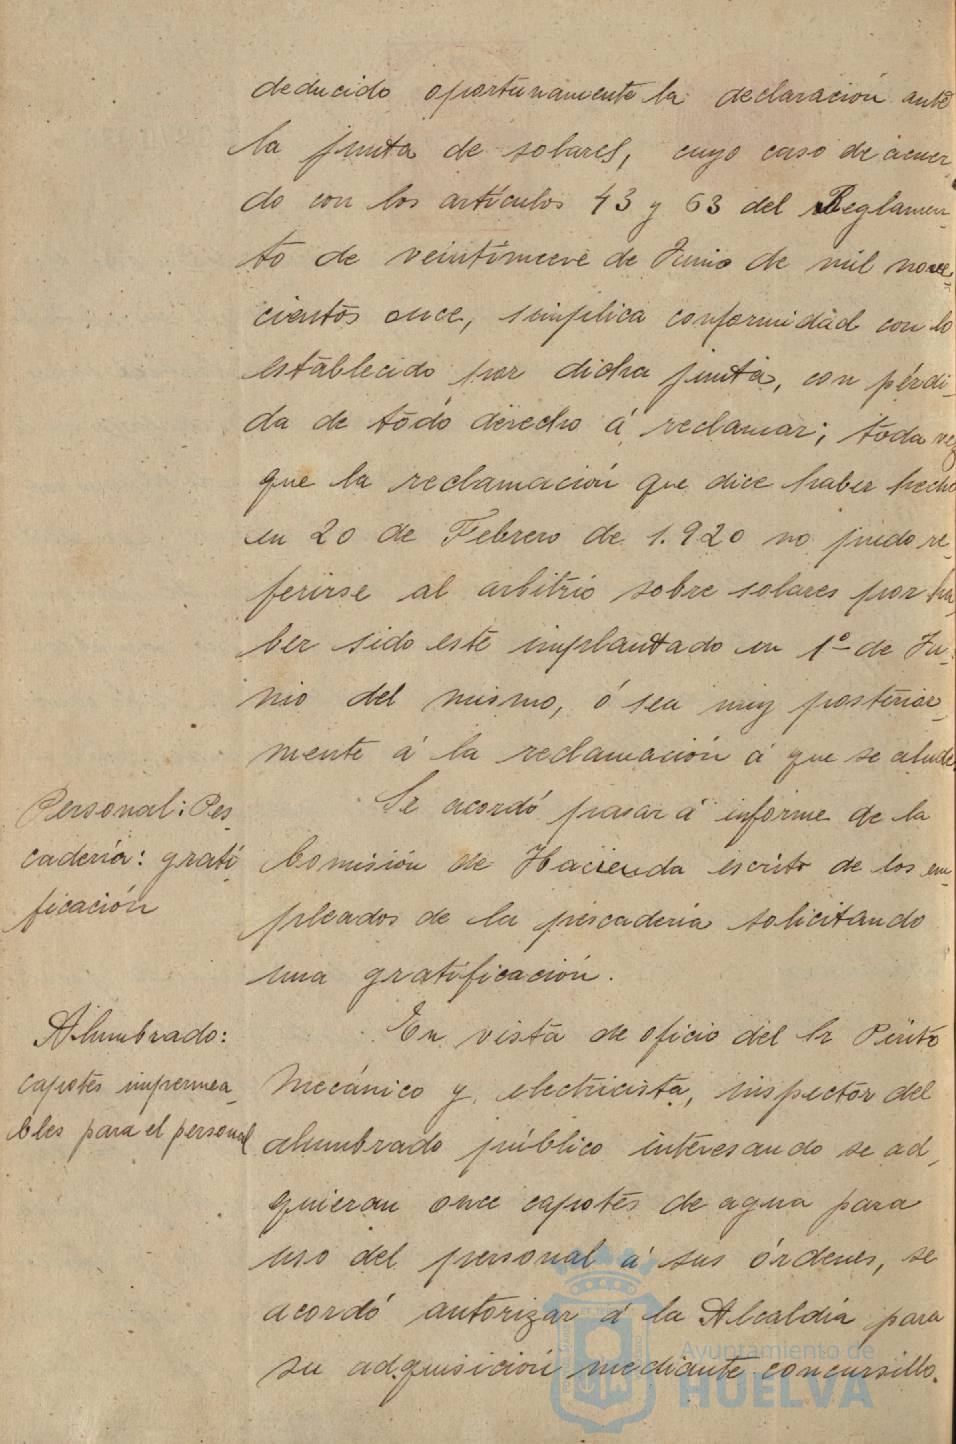 deducido oportunamente la declaración ante
la junta de solares, cuyo caso de acuer
do con los artículos 43 y 63 del Reglamen-
to de veintinueve de Junio de mil nove-
cientos once, simplica conformidad con lo
establecido por dicha junta, con pérdi-
da de todo derecho á reclamar; toda vez
que la reclamación que dice haber hecho
en 20 de Febrero de 1.920 no pudo re-
ferirse al arbitrio sobre solares por ha-
ber sido este implantado en 1º de Ju-
nio del mismo, ó sea muy posterior-
mente á la reclamación á que se alude.
Personal: Pes-
cadería: grati-
ficación
Se acordó pasar á informe de la
Comisión de Hacienda escrito de los em-
pleados de la pescadería solicitando
una gratificación.
Alumbrado:
capotes impermea-
bles para el personal
En vista de oficio del Sr Perito
Mecánico y electricista, inspector del
alumbrado público interesando se ad-
quieran once capotes de agua para
uso del personal á sus órdenes, se
acordó autorizar á la Alcaldía para
su adquisición mediante concursillo.
Ayuntamiento de
HUELVA